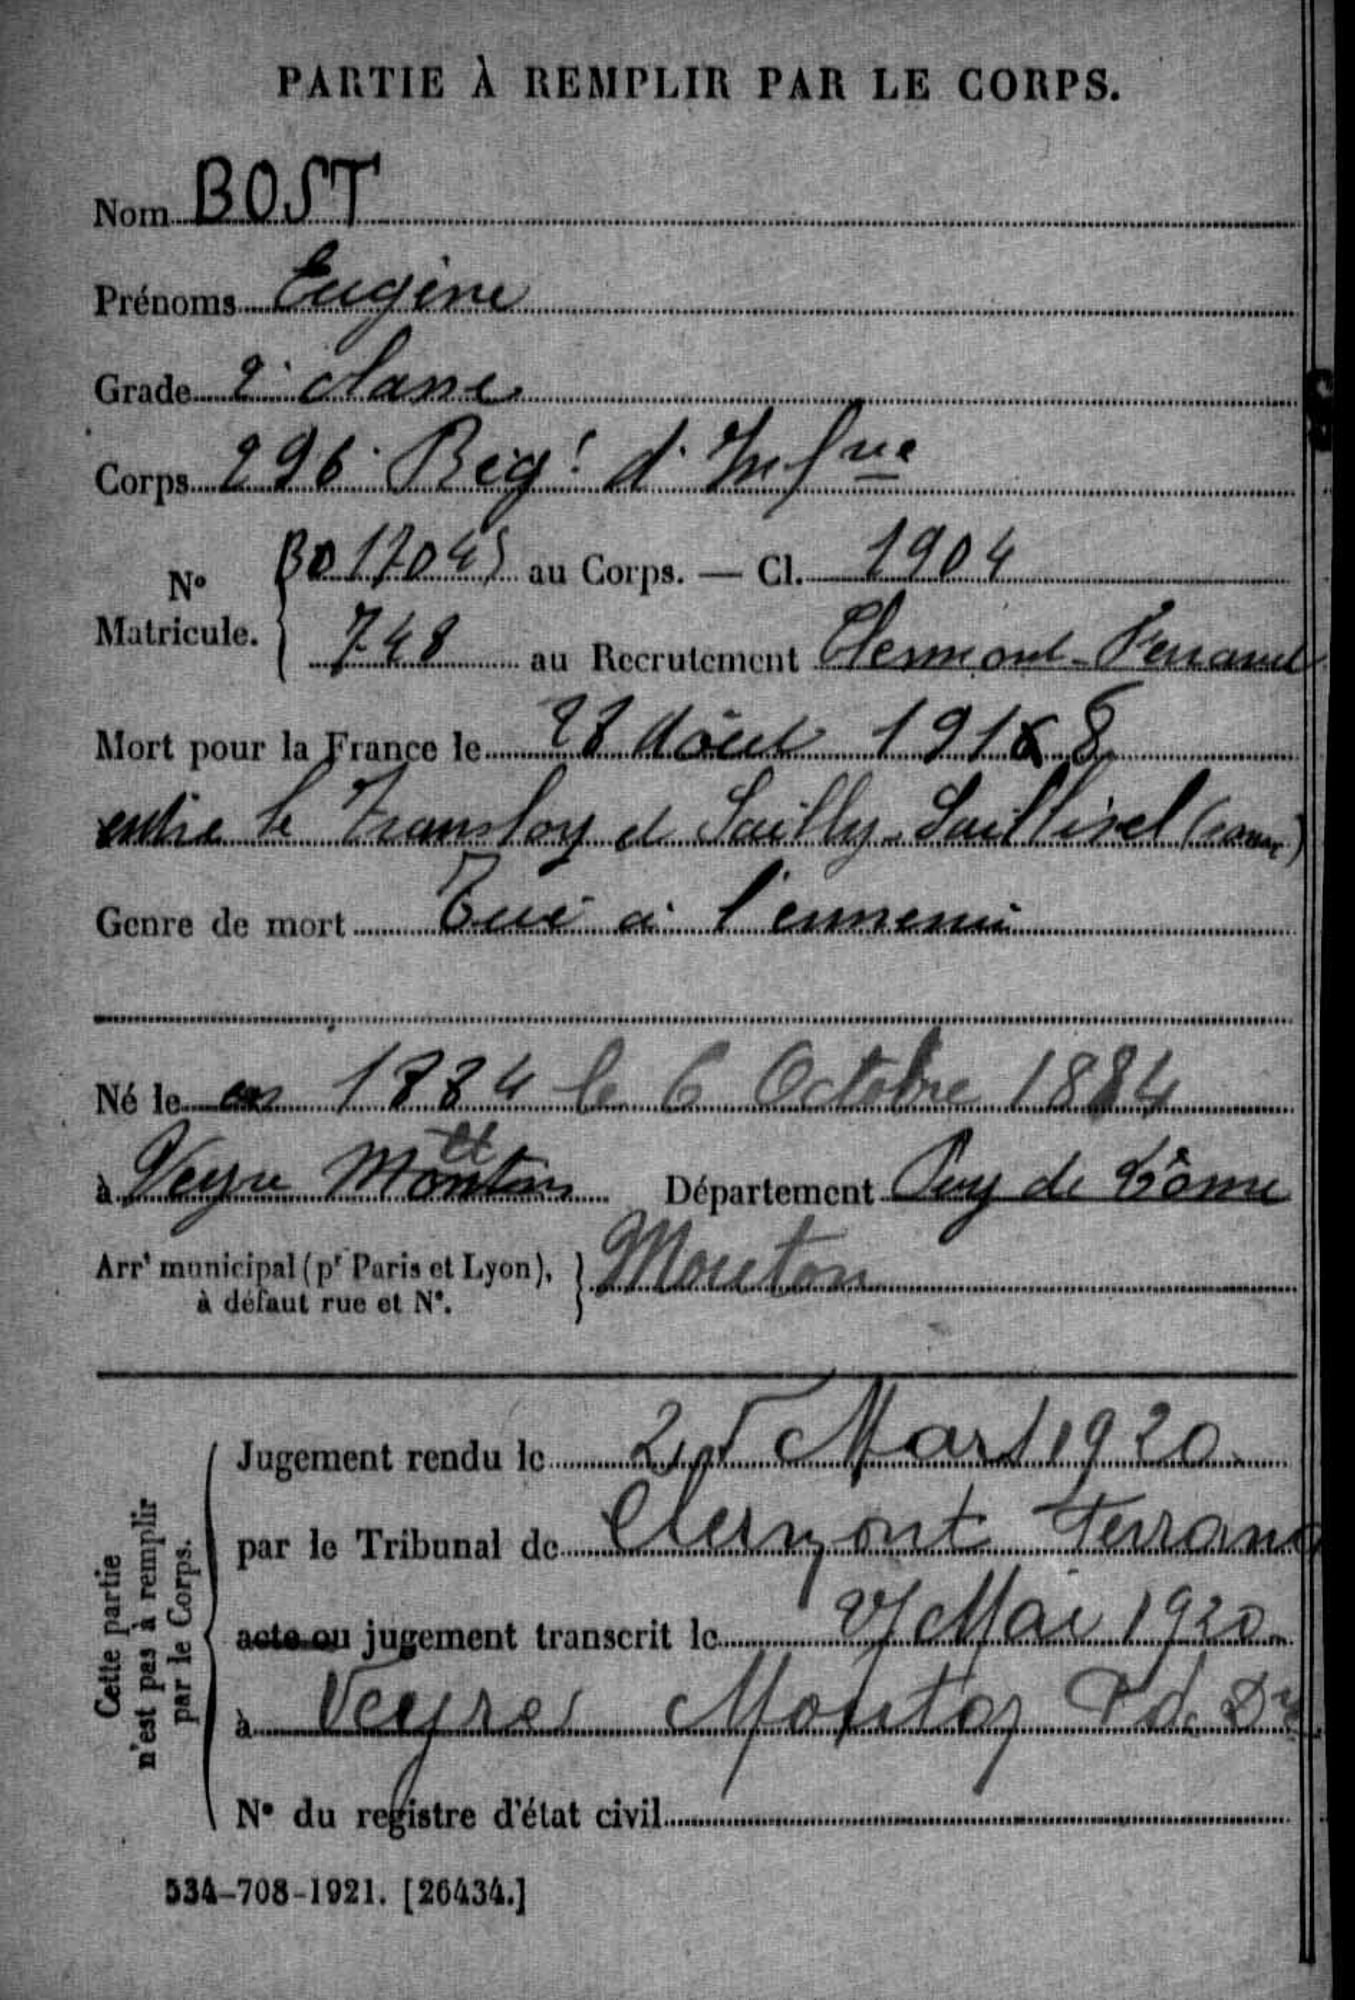 PARTIE À REMPLIR PAR LE CORPS.
Nom BOST
Prénoms Eugène
Grade 2e classe
Corps 296e Régt d'Infrie
No Matricule. { 17045 au Corps. — Cl. 1904
748 au Recrutement Clermont-Ferrand
Mort pour la France le Août 1918
entre le Transloy et Sailly-Saillisel
Genre de mort Tué à l'ennemi
Né le en 1884 le 6 Octobre 1884
à Veyre Mouton Département Puy de Dôme
Arrt municipal (pr Paris et Lyon), à défaut rue et No. } Mouton
Cette partie n'est pas à remplir par le Corps.
Jugement rendu le 25 Mars 1920
par le Tribunal de Clermont Ferrand
acte ou jugement transcrit le Mai 1920
à Veyre Mouton P. d. De
No du registre d'état civil
534-708-1921. [26434.]